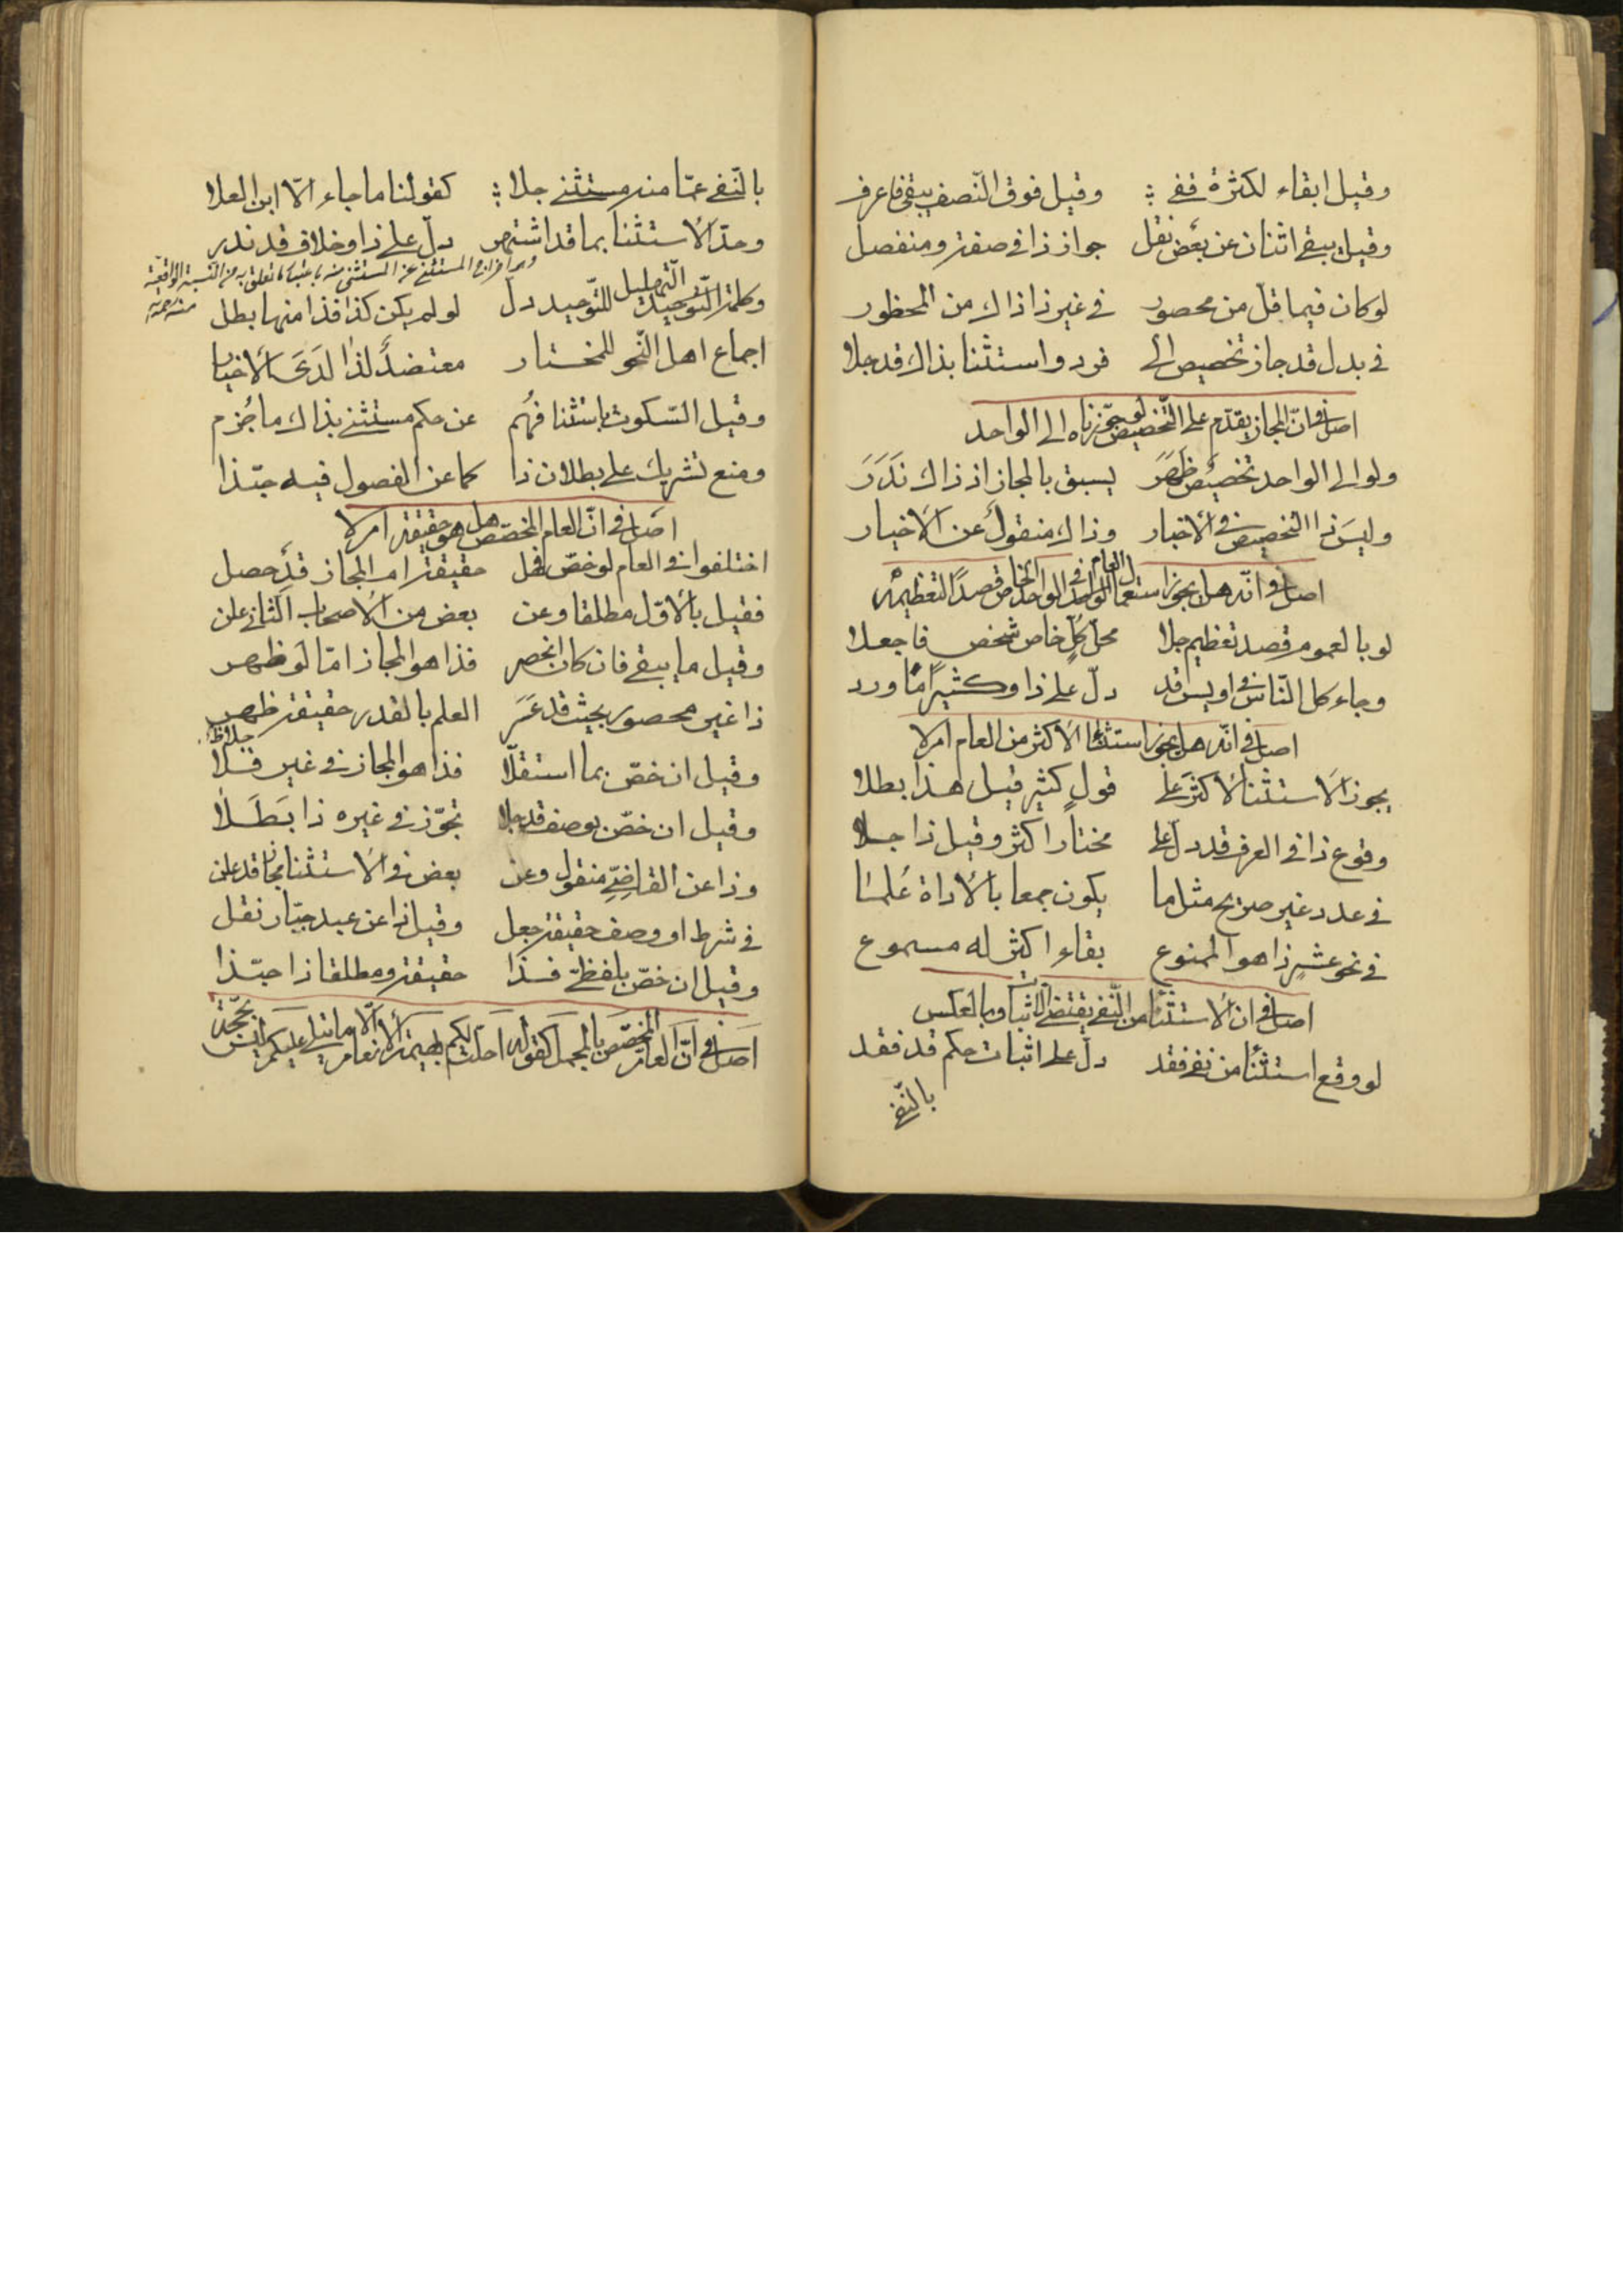 وقيل ابقاء لكثرة قفي وقيل فوق النّصف يبقى فاعرف
وقيل يبقى اثنان عن بعض نقل جواز ذا في صفة ومنفصل
لو كان فيما قلّ من محصور في غير ذا ذاك من المحظور
في بدل قد جاز تخصيص الى فرد واستثنا بذاك قد جلا
اصل في انّ المجاز يقدّم على التّخصيص لو جوّزناه الى الواحد
ولو الى الواحد تخصيص ظهر يسبق بالمجاز اذ ذاك ندر
وليس ذا التخصيص في الاخبار وذاك منقول عن الاخيار
اصل في انّه هل يجوز استعمال العام في الواحد الخاص قصدًا لتعظيمه
لو بالعموم قصد تعظيم جلا محلّ كلّ خاص شخص فاجعلا
وجاء كل النّاس في اويس قد دلّ على ذا وكثيرًا ما ورد
اصل في انّه هل يجوز استثناء الاكثر من العام ام لا
يجوز الاستثنا لاكثر على قول كثير قيل هذا بطلا
وقوع ذا في العرف قد دل على مختار اكثر وقيل ذا جلا
في عدد غير صريح مثل ما يكون جمعا بالاداة علما
في نحو عشر ذا هو الممنوع بقاء اكثر له مسموع
اصل في ان الاستثنا من النّفي يقتضي الاثبات وبالعكس
لو وقع استثنا من نفي فقد دلّ على اثبات حكم قد فقد
بالنّفي
بالنّفي عمّا منه مستثنى جلا كقولنا ما جاء الّا ابن العلا
وحدّ الاستثنا بما قد اشتهر دلّ على ذا وخلاف قد ندر
وهو اخراج المستثنى عن المستثنى منه باعتبار ما تعلق به من النسبة الواقعيّة
منه
وكلمة التّوحيد التّهليل للتّوحيد دلّ لو لم يكن كذا فذا منها بطل
اجماع اهل النّحو للمختار معتضد لذا لدى الاخيار
وقيل السّكوت باستثنا فهم عن حكم مستثنى بذاك ما جزم
ومنع تشريك على بطلان ذا كما عن الفصول فيه حبّذا
اصل في انّ العام المخصّص هل هو حقيقة ام لا
اختلفوا في العام لو خصّ فهل حقيقة ام المجاز قد حصل
فقيل بالاوّل مطلقا وعن بعض من الاصحاب الثاني علن
وقيل ما يبقى فان كان انحصر فذا هو المجاز امّا لو ظهر
ذا غير محصور بحيث قد عسر العلم بالقدر حقيقة ظهر
وقيل ان خصّ بما استقلّا فذا هو المجاز في غير فلا
وقيل ان خصّ بوصف قد جلا تجوّز في غيره ذا بطلا
وذا عن القاضي منقول وعن بعض في الاستثنا مجاز قد علن
في شرط او وصف حقيقة جعل وقيل ذا عن عبد جبّار نقل
وقيل ان خصّ بلفظيّ فذا حقيقة ومطلقا ذا حبّذا
اصل في انّ العام المخصّص بالمجمل كقوله احلّت لكم بهيمة الانعام الّا ما يتلى عليكم ليس بحجّة